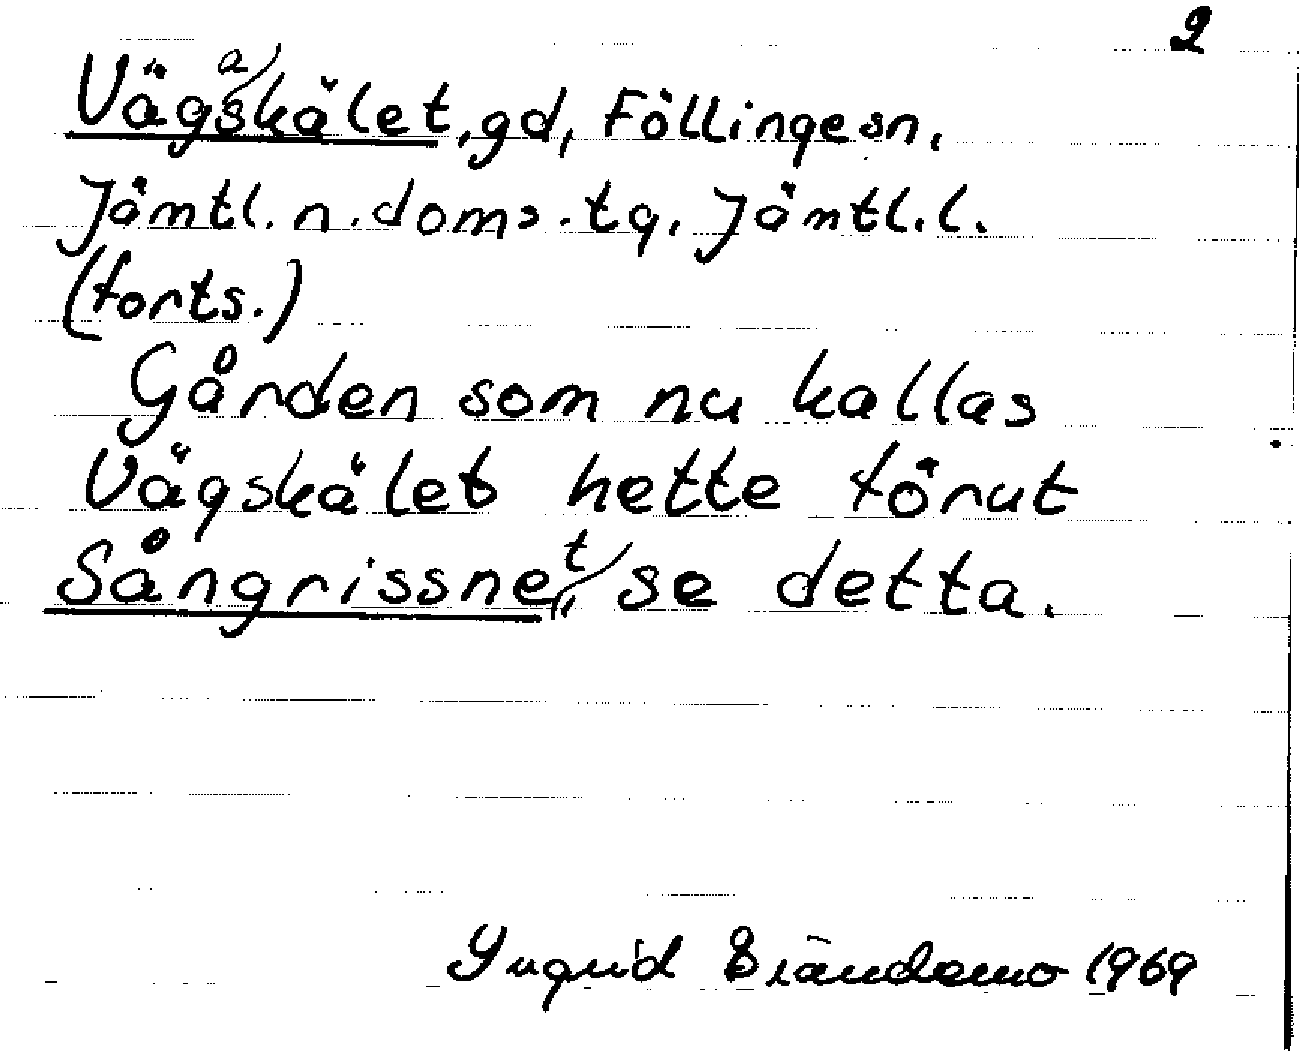 2
Vägaskälet, gd, Föllinge sn,
Jämtl. n. doms. tg, Jämtl. l.
(forts.)
Gården som nu kallas
Vägskälet hette förut
Sångrissnet, se detta.
Ingrid Brändemo 1969